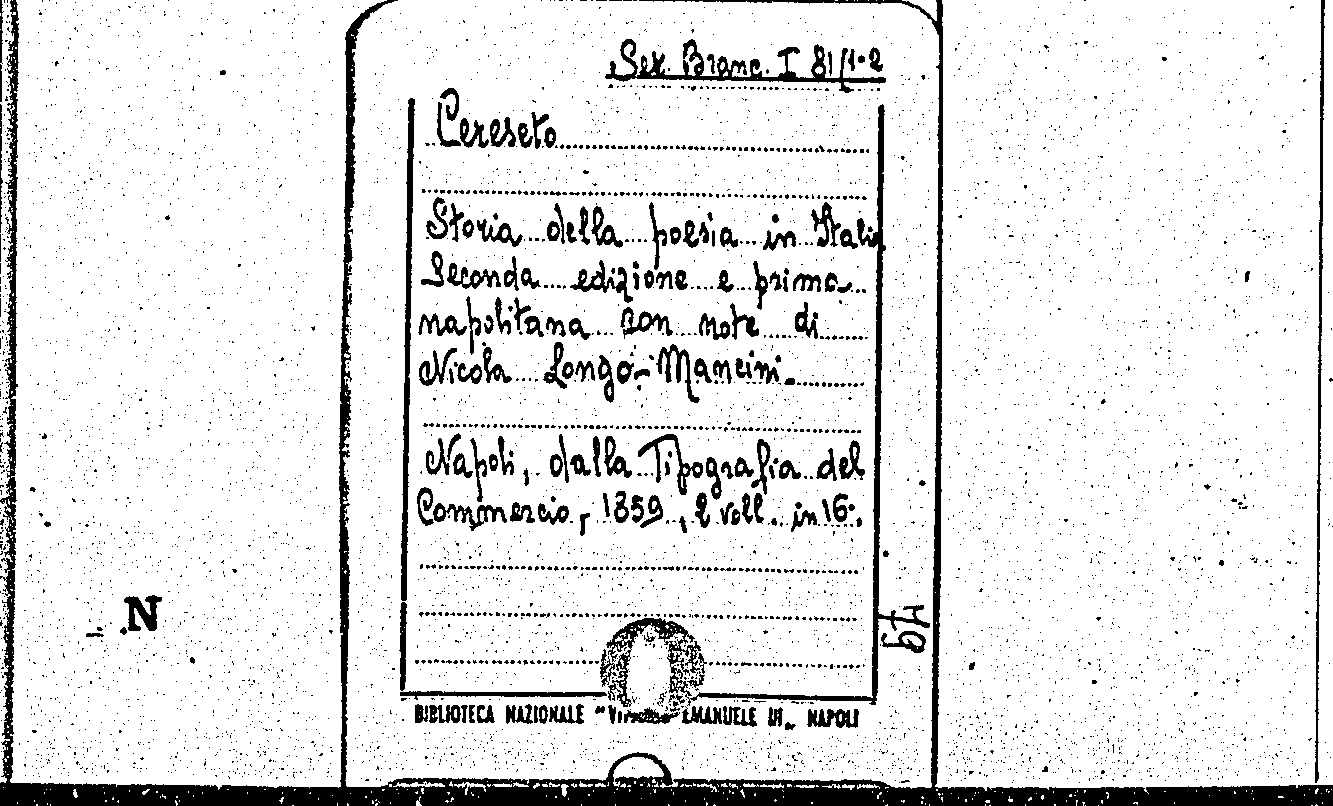 Sez. Branc. I 81/1-2
Cereseto
Storia della poesia in Italia
Seconda edizione e prima
napolitana con note di
Nicola Longo-Mancini.
Napoli, dalla Tipografia del
Commercio, 1859, 2 voll. in 16°.
BIBLIOTECA NAZIONALE "VITTORIO EMANUELE III" NAPOLI
N